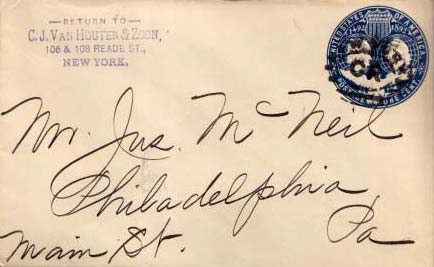 RETURN TO
C. J. VAN HOUTEN & ZOON,
106 & 108 READE ST.,
NEW YORK.
UNITED STATES OF AMERICA
1492 1892
POSTAGE ONE CENT
Mr. Jas. McNeil
Philadelphia
Pa
Main St.